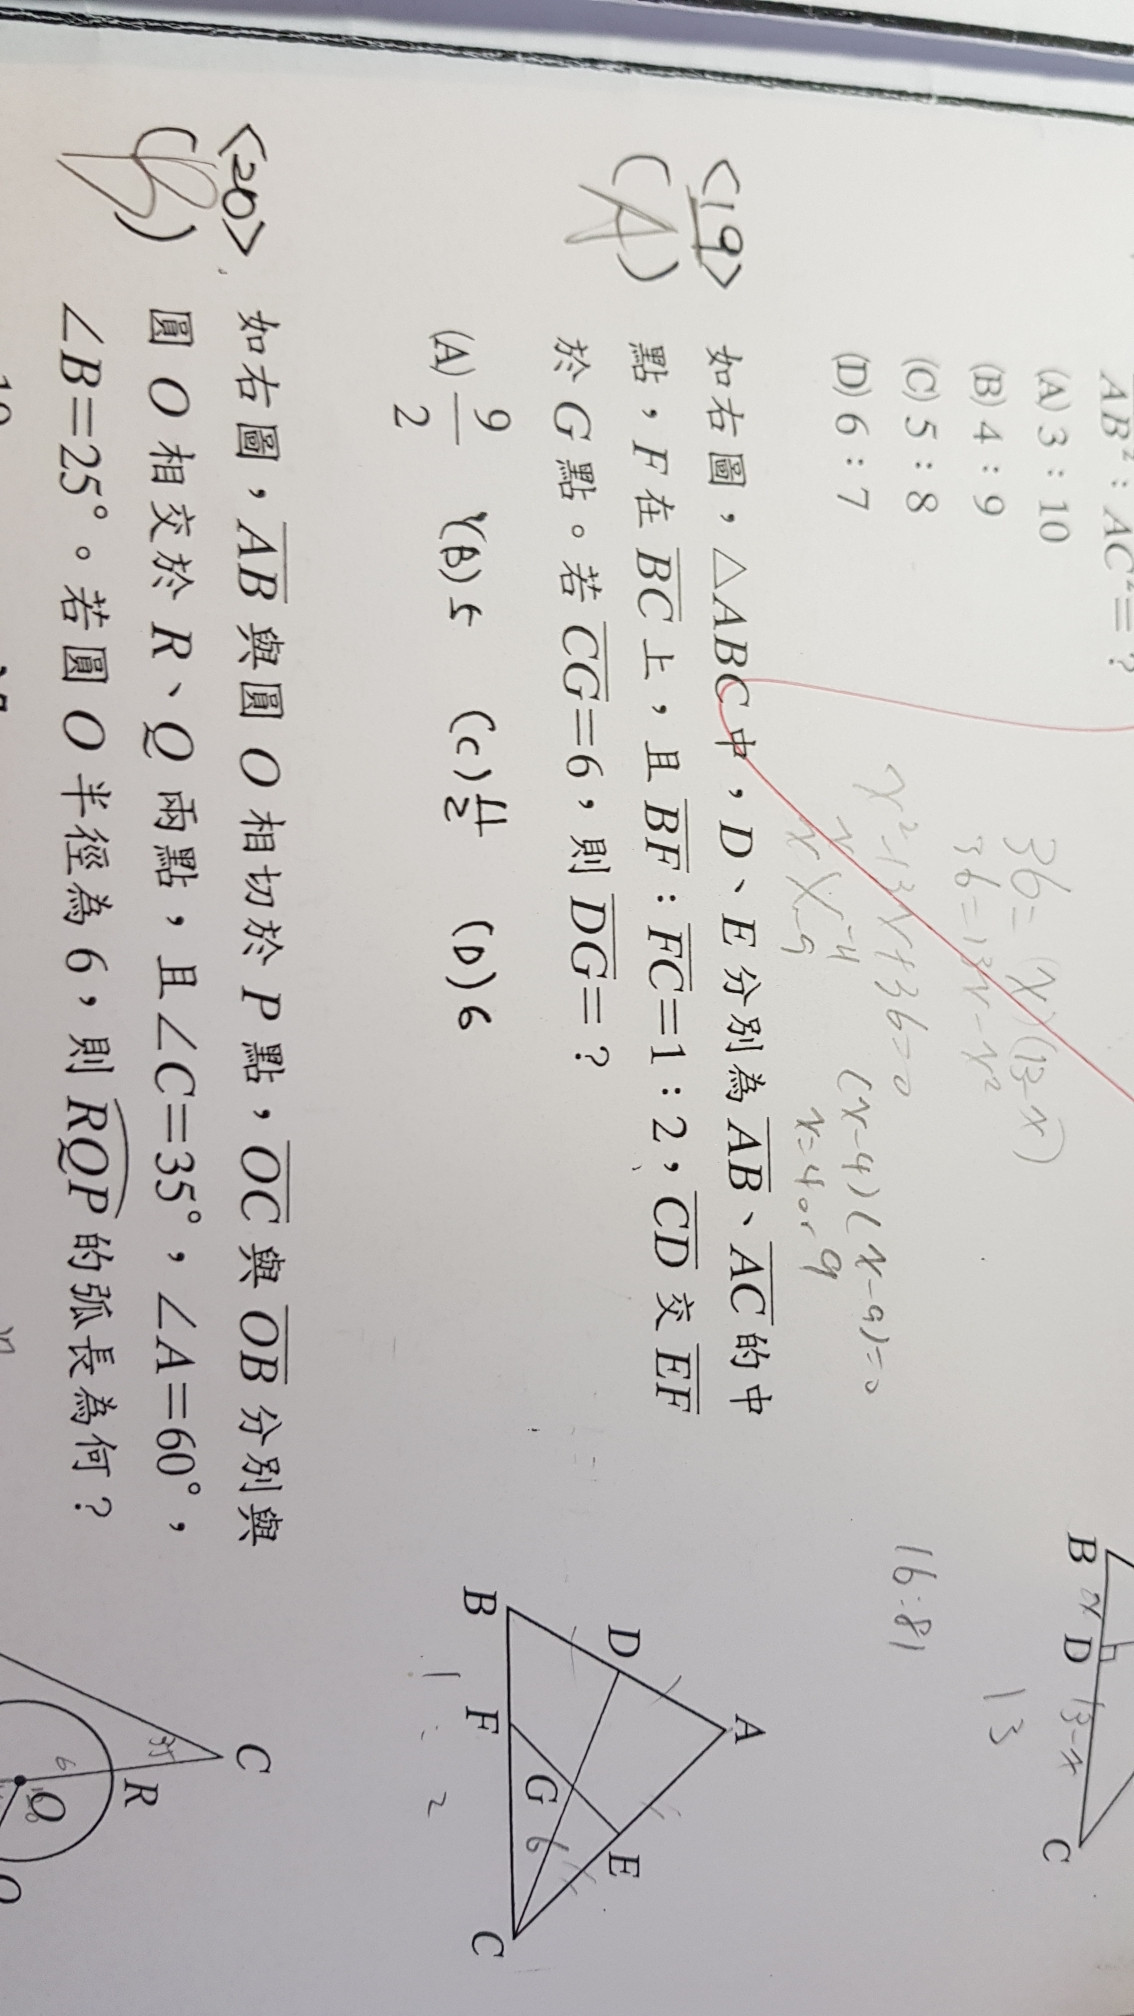 AB²：AC²=？
(A) 3：10
(B) 4：9
(C) 5：8
(D) 6：7
36=(x)(13-x)
36=13x-x²
x²-13x+36=0
x -4
x -9
(x-4)(x-9)=0
x=4 or 9
16:81
13
B x D 13-x C
<19>
(A)
如右圖，△ABC中，D、E分別為AB、AC的中
點，F在BC上，且BF：FC=1：2，CD交EF
於G點。若CG=6，則DG=？
(A) 9/2 (B) 5 (C) 11/2 (D) 6
A
D
E
G
6
B
F
C
1 : 2
<20>
(B)
如右圖，AB與圓O相切於P點，OC與OB分別與
圓O相交於R、Q兩點，且∠C=35°，∠A=60°，
∠B=25°。若圓O半徑為6，則RQP的弧長為何？
C
35
R
6
O
Q